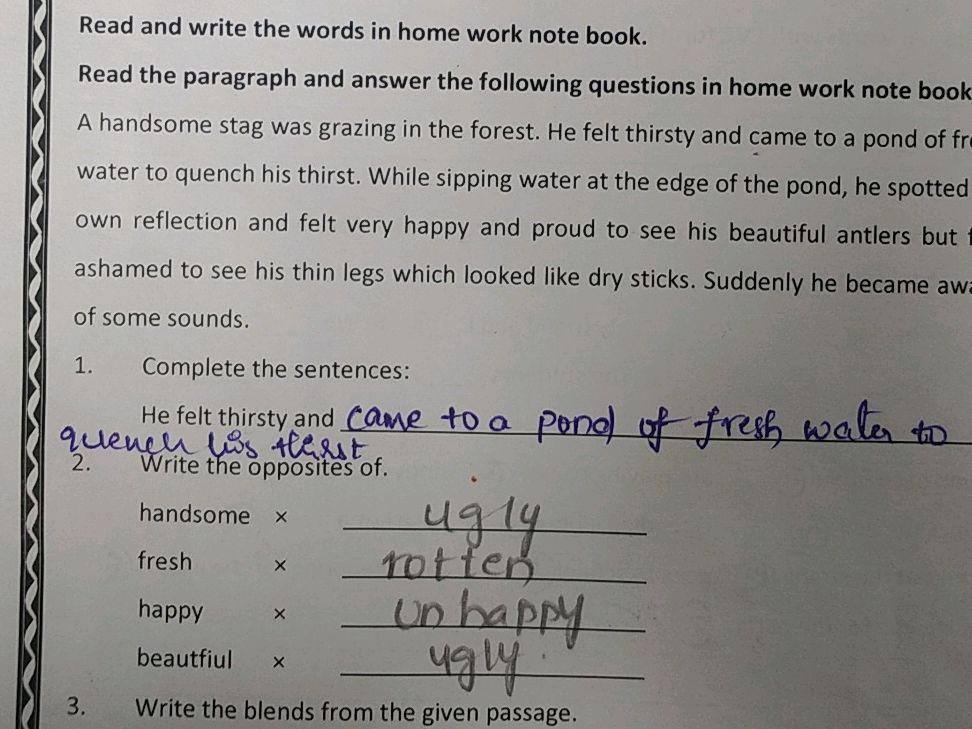 Read and write the words in home work note book.
Read the paragraph and answer the following questions in home work note book
A handsome stag was grazing in the forest. He felt thirsty and came to a pond of fre
water to quench his thirst. While sipping water at the edge of the pond, he spotted
own reflection and felt very happy and proud to see his beautiful antlers but f
ashamed to see his thin legs which looked like dry sticks. Suddenly he became awa
of some sounds.
1. Complete the sentences:
He felt thirsty and came to a pond of fresh water to
quench his thirst
2. Write the opposites of.
handsome × ugly
fresh × rotten
happy × unhappy
beautfiul × ugly
3. Write the blends from the given passage.